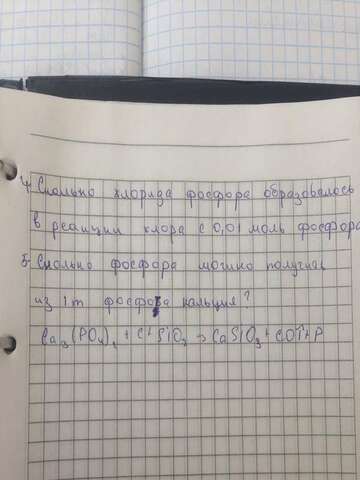 4. Сколько хлорида фосфора образовалось
в реакции хлора с 0,01 моль фосфора
5. Сколько фосфора можно получить
из 1т фосфата кальция?
Ca₃(PO₄)₂ + C + SiO₂ → CaSiO₃ + CO↑ + P